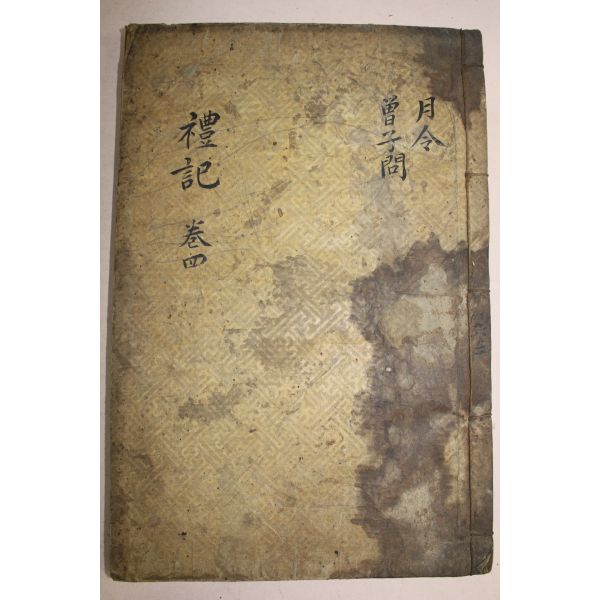 月令
曾子問
禮記 巻四